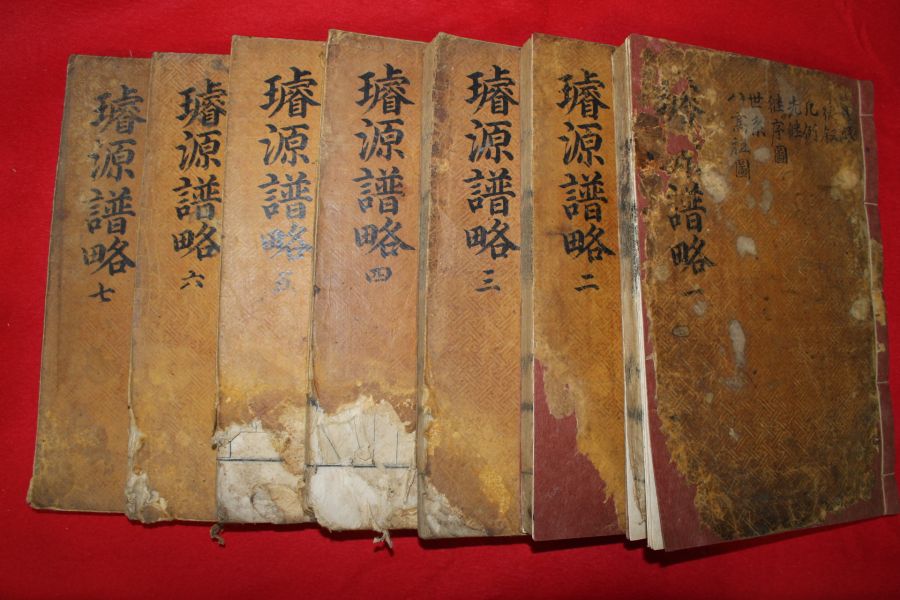 凡例
継序圖
世系
八高祖圖
譜略 一
璿源譜略 二
璿源譜略 三
璿源譜略 四
璿源譜略 五
璿源譜略 六
璿源譜略 七